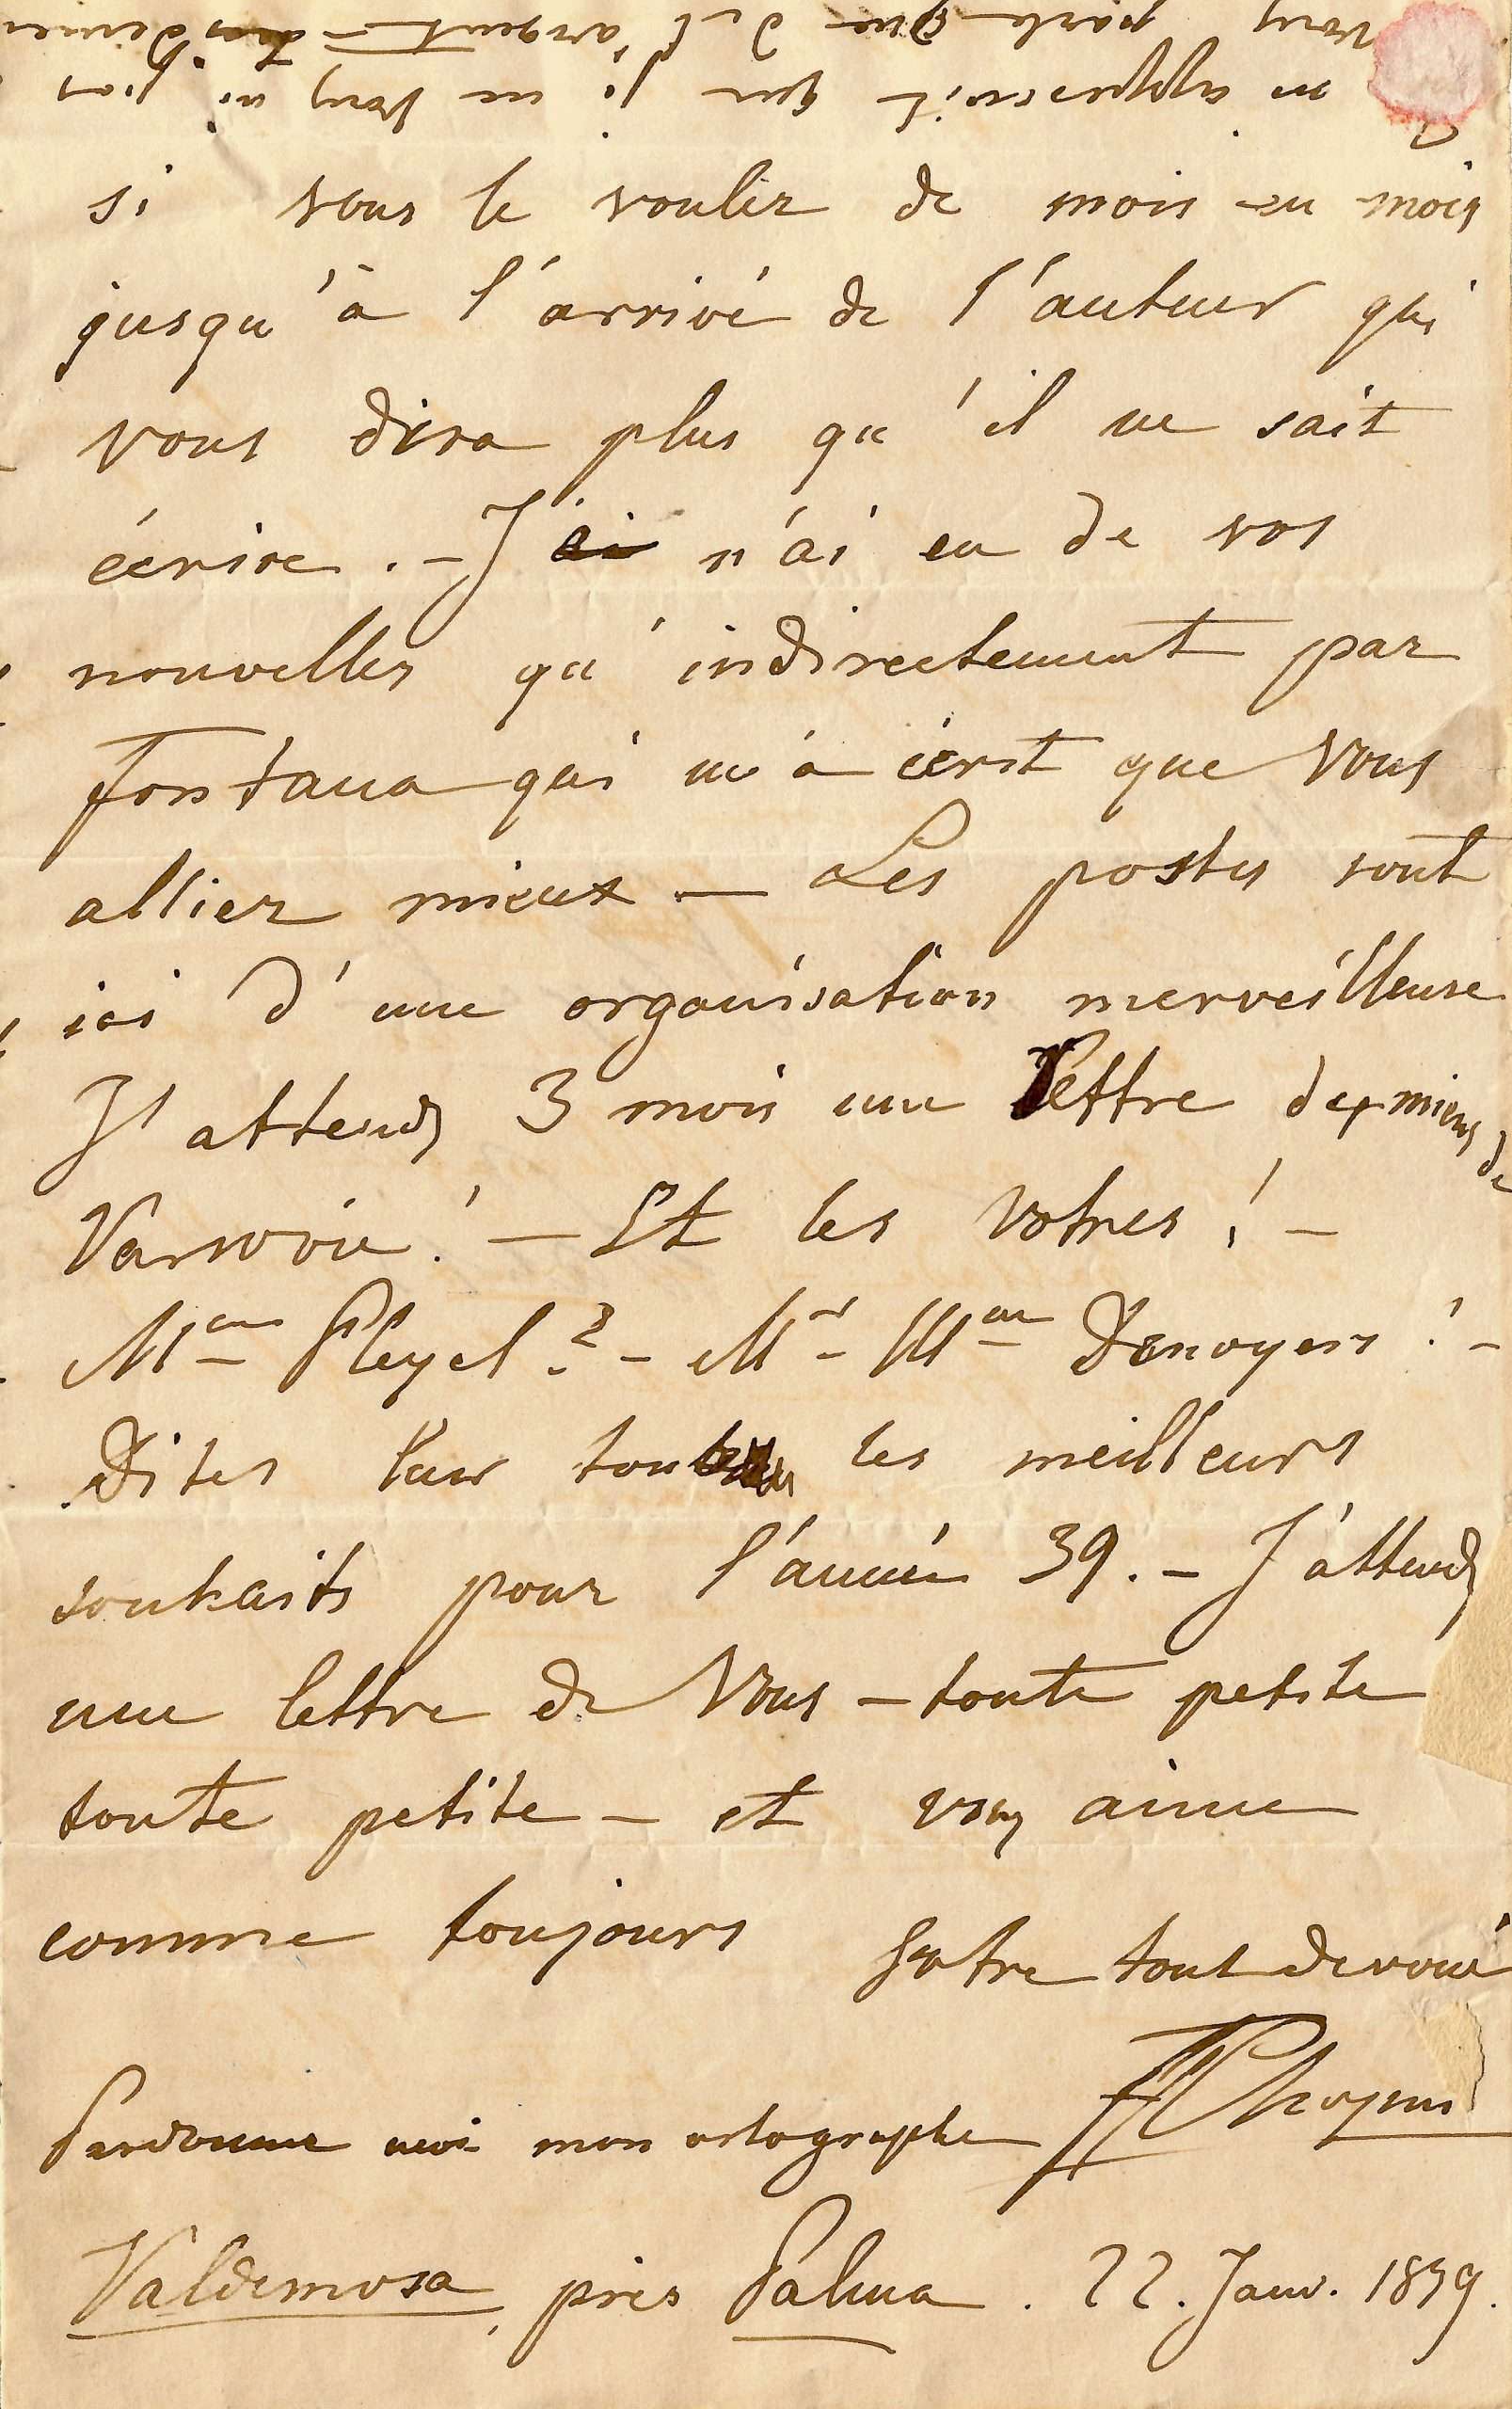 m'apperçoit que je ne vous ai pas
vous parle que de l'argent
si vous le voulez de mois en mois
jusqu'à l'arrivé de l'auteur qui
vous dira plus qu'il ne sait
écrire. – J n'ai eu de vos
nouvelles qu'indirectement par
Fontana qui m'a écrit que Vous
alliez mieux — Les postes sont
ici d'une organisation merveilleuse
J'attends 3 mois une lettre des miens de
Varsovie! — Et les votres! –
Mme Pleyel? – Mr – Mme Denoyers! –
Dites leur tous les meilleurs
souhaits pour l'année 39. – J'attends
une lettre de Vous – toute petite
toute petite – et vous aime
comme toujours
Votre tout devoué
FChopin
Pardonnez moi mon ortographe
Valdemosa, près Palma. 22. Janv. 1839.